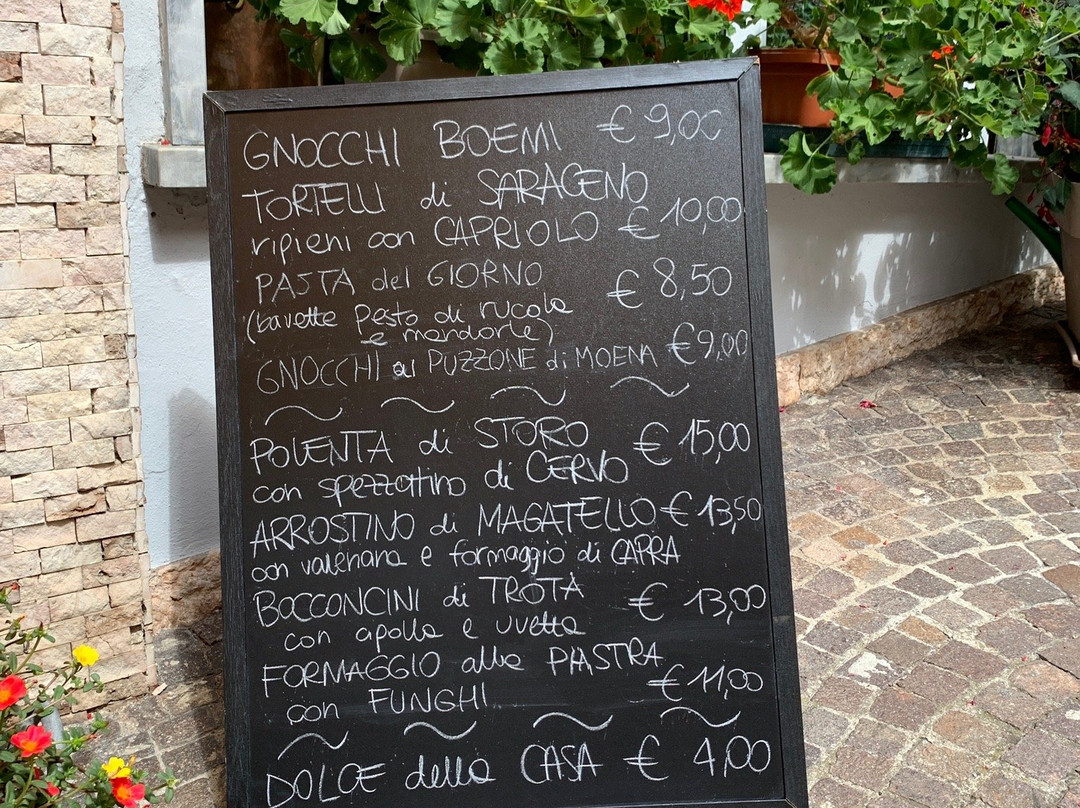 GNOCCHI BOEMI € 9,00
TORTELLI di SARACENO
ripieni con CAPRIOLO € 10,00
PASTA del GIORNO € 8,50
(bavette Pesto di rucola
e mandorle)
GNOCCHI al PUZZONE di MOENA € 9,00
POLENTA di STORO € 15,00
con spezzattino di CERVO
ARROSTINO di MAGATELLO € 13,50
con valeriana e formaggio di CAPRA
BOCCONCINI di TROTA € 13,00
con cipolla e uvetta
FORMAGGIO alla PIASTRA
con FUNGHI € 11,00
DOLCE della CASA € 4,00